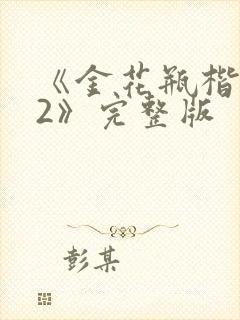 《金花瓶楷
2》完整版
彭某